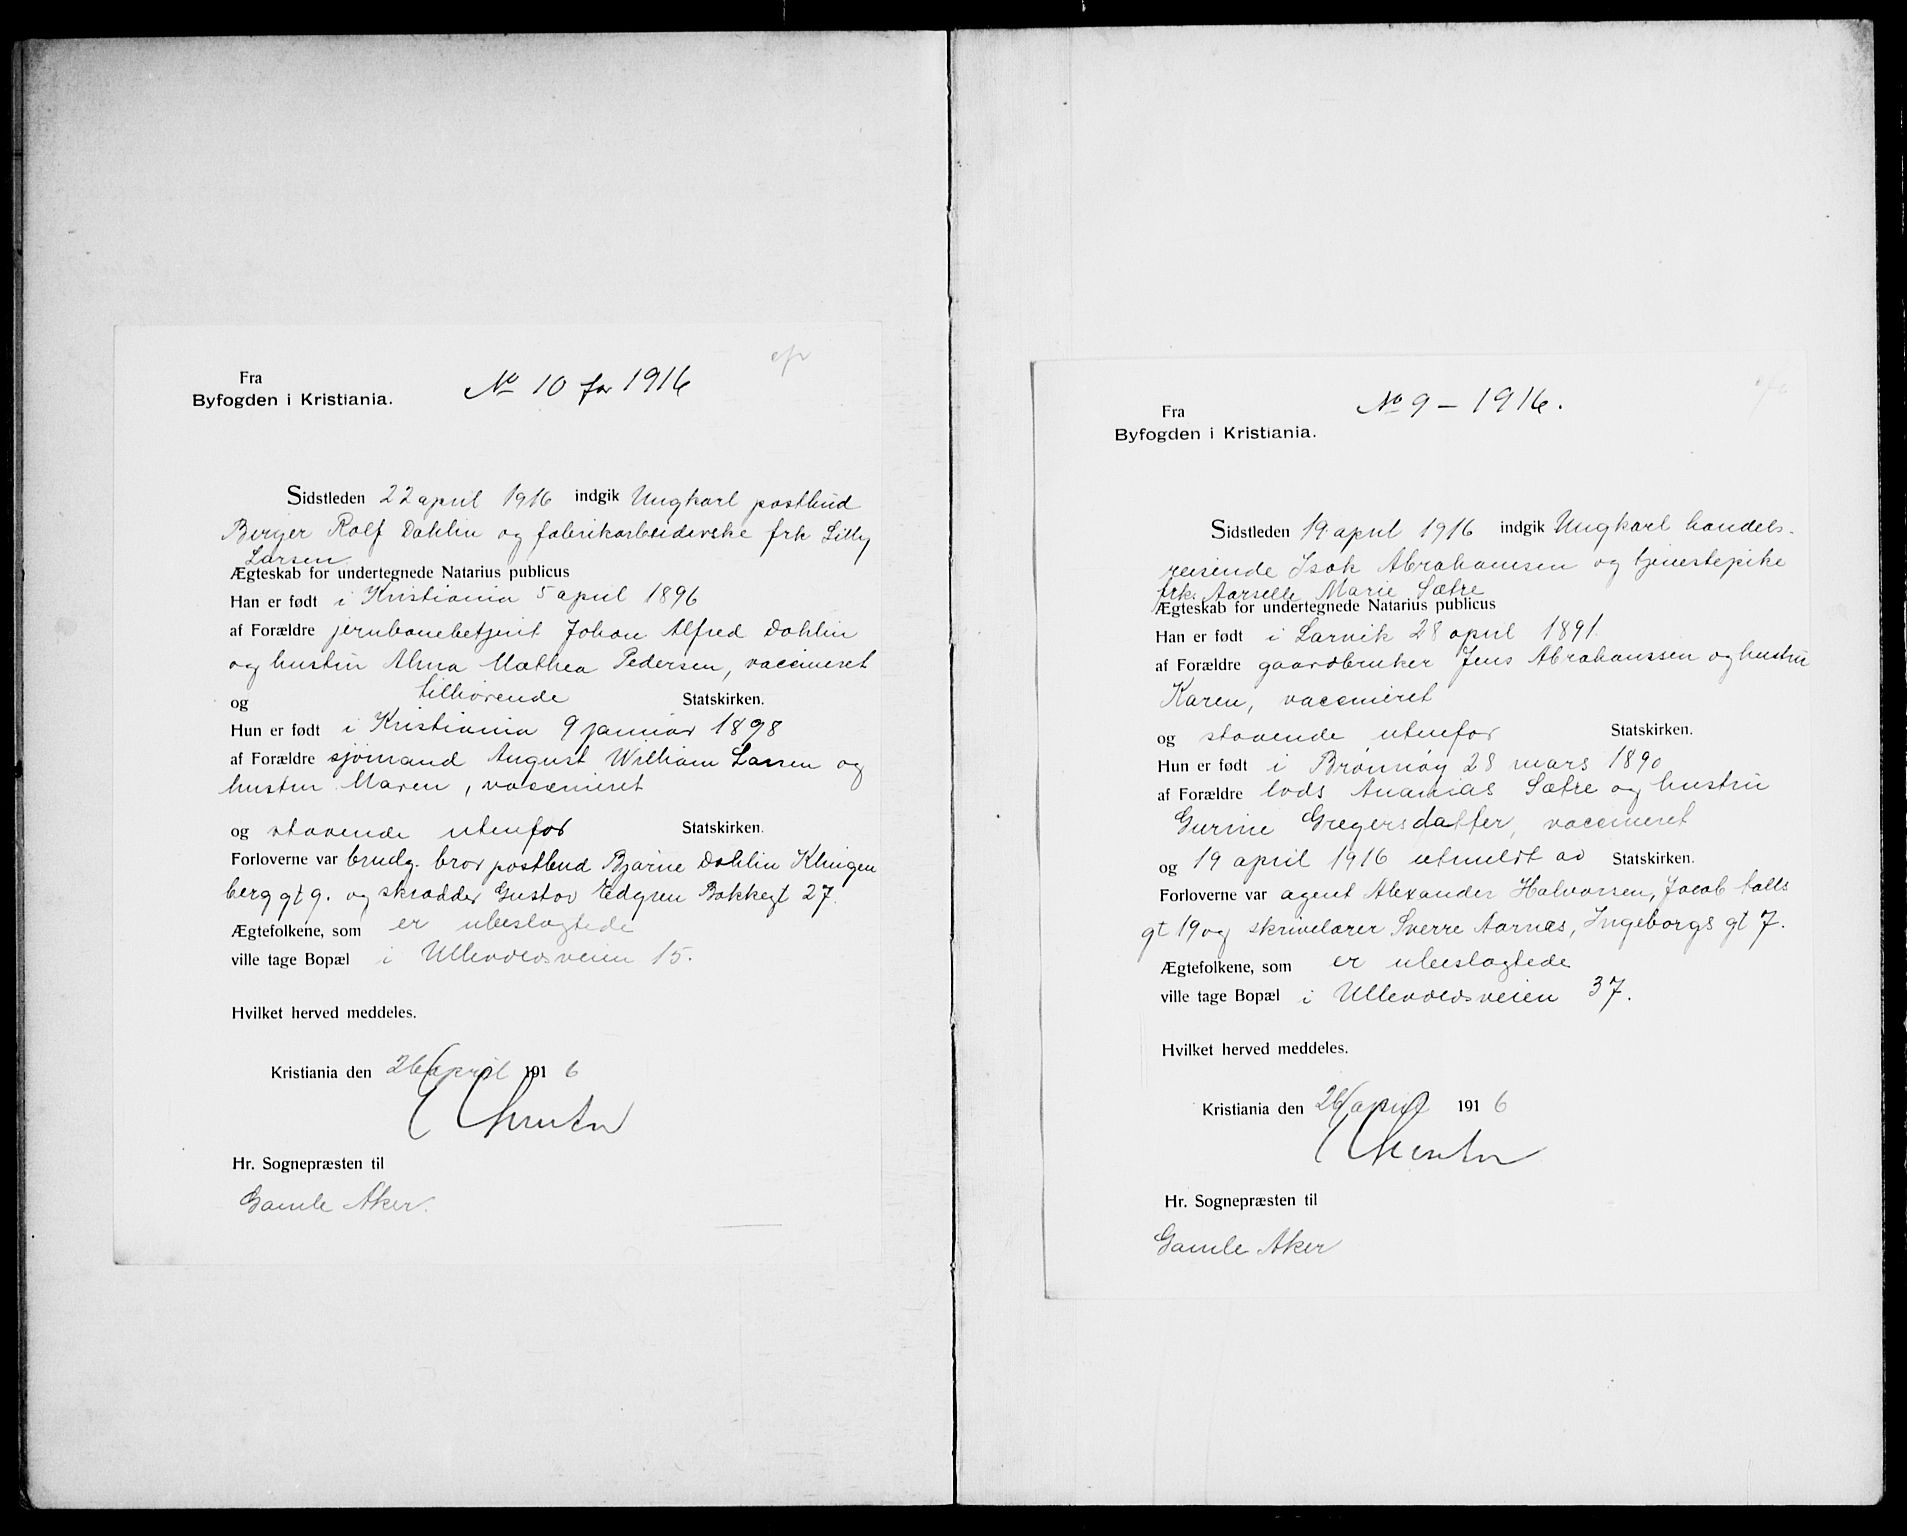 Fra
Byfogden i Kristiania.
No 10 for 1916
Sidstleden 22 april 1916 indgik Ungkarl postbud
Berger Rolf Dahlin og fabrikarbeiderske frk Lilly
Larsen
Ægteskab for undertegnede Natarius publicus
Han er født i Kristiania 5 april 1896
af Forældre jernbanebetjent Johan Alfred Dahlin
og hustru Alma Mathea Pedersen, vaccineret
og tilhørende Statskirken.
Hun er født i Kristiania 9 januar 1898
af Forældre sjømand August William Larsen og
hustru Maren, vaccineret
og staaende utenfor Statskirken.
Forloverne var brudg. bror postbud Bjarne Dahlin Klingen
berg gt 9. og skrædder Gustav Edgren Bakkegt 27.
Ægtefolkene, som er ubeslægtede
ville tage Bopæl i Ullevoldsveien 15.
Hvilket herved meddeles.
Kristiania den 26/april 1916
Hr. Sognepræsten til
Gamle Aker.
Fra
Byfogden i Kristiania.
No 9 – 1916.
Sidstleden 19 april 1916 indgik Ungkarl handels-
reisende Isak Abrahamsen og tjenestepike
frk. Aarselle Marie Sætre
Ægteskab for undertegnede Natarius publicus
Han er født i Larvik 28 april 1891
af Forældre gaardbruker Jens Abrahamssen og hustru
Karen, vaccineret
og staaende utenfor Statskirken.
Hun er født i Brønnøy 28 mars 1890
af Forældre lods Ananias Sætre og hustru
Gurine Gregersdatter, vaccineret
og 19 april 1916 utmeldt av Statskirken.
Forloverne var agent Alexander Halvorsen, Jacob Aalls
gt 19 og skrivelærer Sverre Aarnæs, Ingeborgs gt 7.
Ægtefolkene, som er ubeslægtede
ville tage Bopæl i Ullevoldsveien 37.
Hvilket herved meddeles.
Kristiania den 26/april 1916
Hr. Sognepræsten til
Gamle Aker